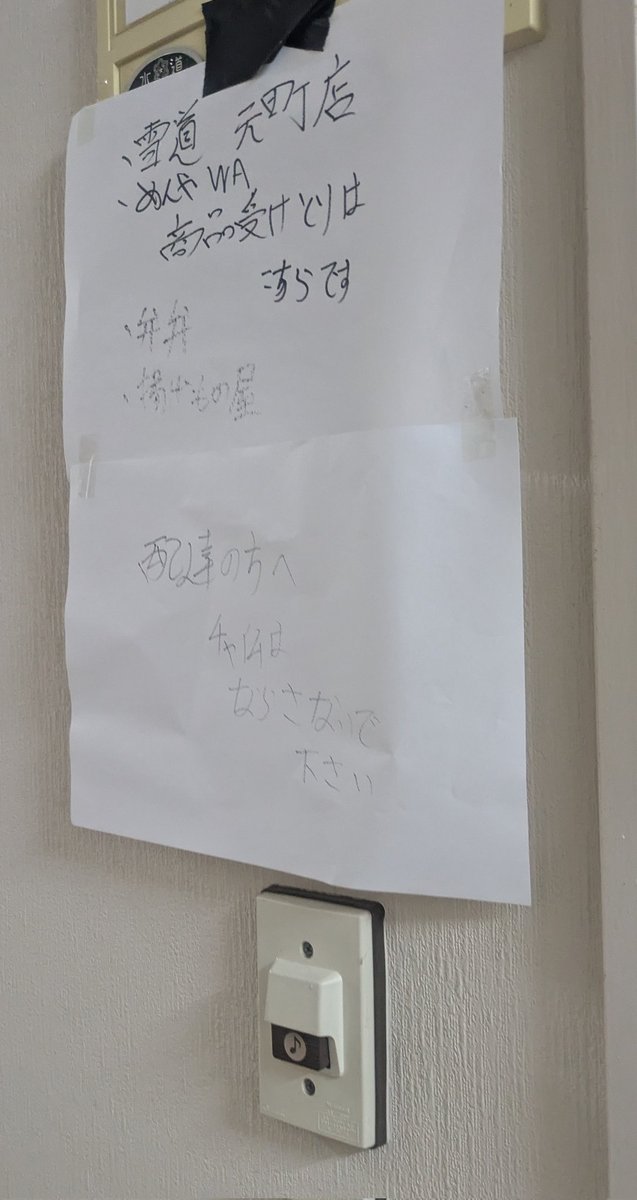 水道
・雪道 元町店
・めんや WA
商品受けとりは
こちらです
・弁弁
・揚げもの屋
配達の方へ
チャイムは
ならさないで
下さい